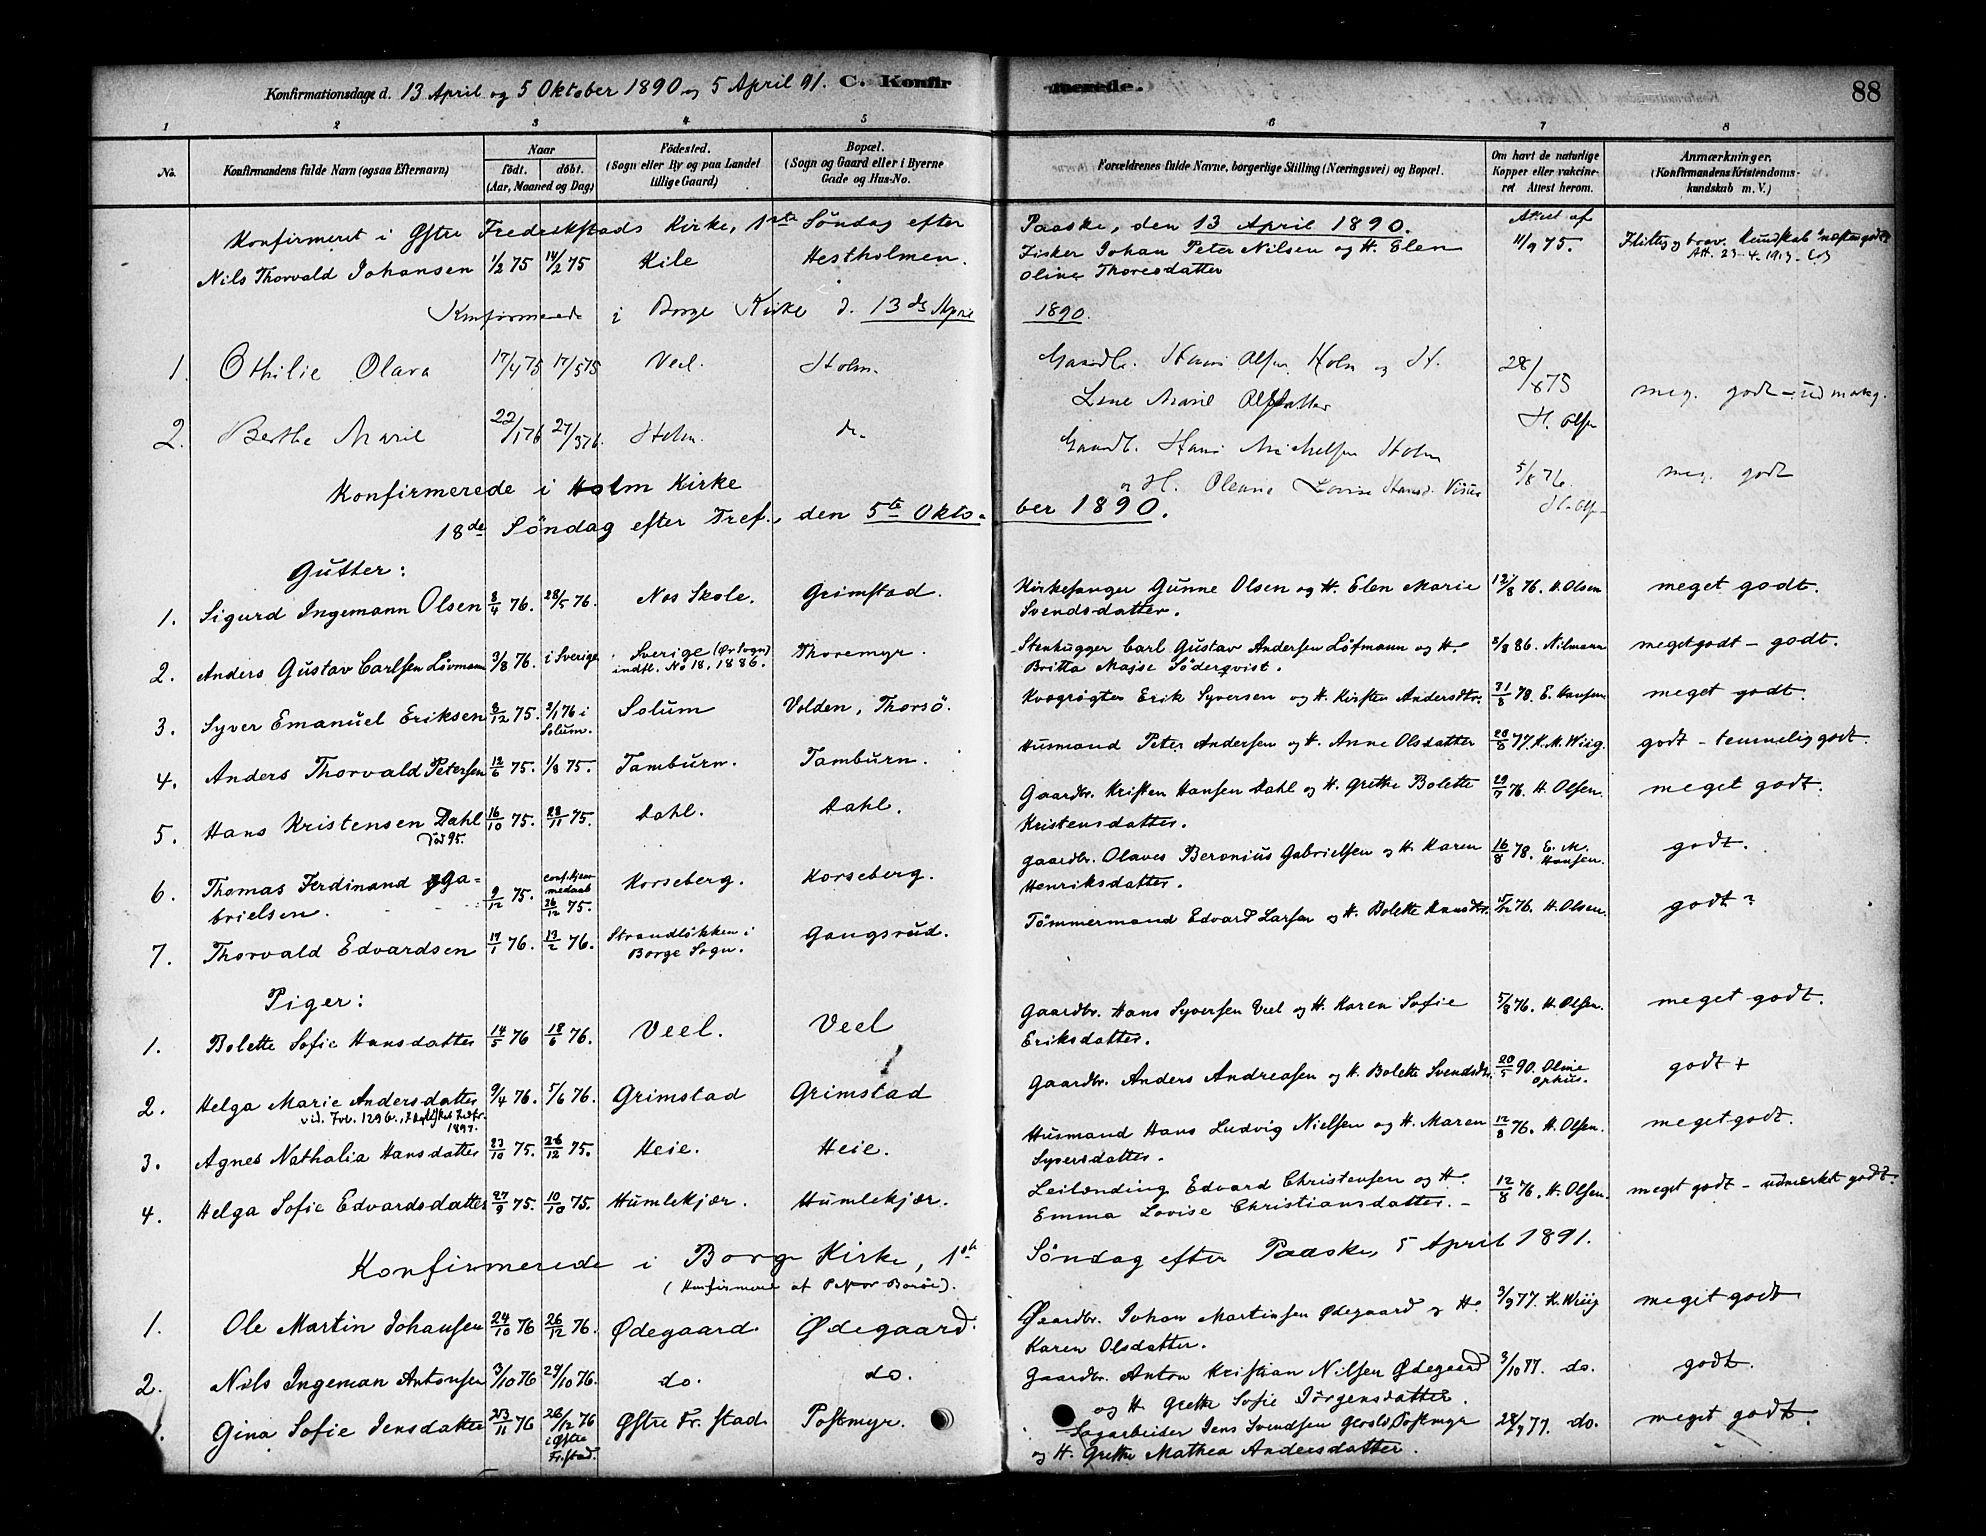 Konfirmationsdage d. 13 April og 5 Oktober 1890 og 5 April 91. C. Konfir
merede.
88
1 2 3 4 5 6 7 8
No. Konfirmandens fulde Navn (ogsaa Efternavn) Naar født. døbt. (Aar, Maaned og Dag) Fødested. (Sogn eller By og paa Landet tillige Gaard) Bopæl. (Sogn og Gaard eller i Byerne Gade og Hus-No. Forældrenes fulde Navne, borgerlige Stilling (Næringsvei) og Bopæl. Om havt de naturlige Kopper eller vakcineret Attest herom. Anmærkninger. (Konfirmandens Kristendomskundskab m. V.)
Konfirmeret i Østre Fredrikstads Kirke, 1ste Søndag efter Paaske, den 13 April 1890. Attest af
Nils Thorvald Johansen 1/2 75 14/2 75 Kile Hestholmen. Fisker Johan Peter Nilsen og H. Elen 11/9 75. Flittig og brav. Kundskab næsten godt
Oline Thoresdatter Att. 23-4. 1913
Konfirmerede i Borge Kirke d. 13de April 1890.
1. Othilie Olava 17/4 75 17/5 75 Veel. Holm. Gaardbr. Hans Olsen Holm og H. 28/8 75 meg. godt - udmærg.
Lene Marie Olsdatter H. Olsen
2. Berthe Marie 22/1 76 27/3 76. Holm. do. Gaardb. Hans Michelsen Holm 5/8 76. meg. godt
og H. Oleane Lovise Hansd. H. Olsen
Konfirmerede i Holm Kirke
18de Søndag efter Tref., den 5te Oktober 1890.
Gutter:
1. Sigurd Ingemann Olsen 8/4 76. 28/5 76. Nes Skole. Grimstad. Kirkesanger Gunne Olsen og H. Elen Marie 12/8 76. H. Olsen meget godt.
Svendsdatter.
2. Anders Gustav Carlsen Lövmann 3/8 76. i Sverige Sverige Thoremyr. Stenhugger Carl Gustav Andersen Löfmann og H. 8/8 86. Nilmann meget godt - godt.
indfl. No 18, 1886. Britta Majse Söderqvist.
3. Syver Emanuel Eriksen 8/12 75. 2/1 76 i Solum. Solum Volden, Thorsö. Kvægrøgter Erik Syversen og H. Kirsten Andersdtr. 31/8 78. E. Hansen meget godt.
4. Anders Thorvald Petersen 12/6 75. 1/8 75. Tamburn. Tamburn. Husmand Peter Andersen og H. Anne Olsdatter 20/8 77. K. M. Wiig. godt - temmelig godt.
5. Hans Kristensen Dahl 16/10 75. 28/11 75. Dahl. Dahl. Gaardbr. Kristen Hansen Dahl og H. Grethe Bolette 29/7 76. H. Olsen. meget godt.
Död 95. Kristensdatter.
6. Thomas Ferdinand Gabrielsen. 9/12 75. conf. hjemmedaab 26/12 75. Korseberg. Korseberg. Gaardbr. Olaves Beronius Gabrielsen og H. Karen 16/8 78. E. M. Hansen. godt.
Henriksdatter.
7. Thorvald Edvardsen 17/1 76. 13/2 76. Strandløkken i Borge Sogn. Gangsrud. Tømmermand Edvard Larsen og H. Bolette Hansdtr. 5/12 76. H. Olsen. godt ?
Piger:
1. Bolette Sofie Hansdatter 14/5 76 18/6 76. Veel. Veel Gaardbr. Hans Syversen Veel og H. Karen Sofie 5/8 76. H. Olsen. meget godt.
Eriksdatter.
2. Helga Marie Andersdatter 9/4 76. 5/6 76. Grimstad Grimstad Gaardbr. Anders Andreasen og H. Bolette Svendsdtr. 20/5 90. Oline Ophus. godt +
1897.
3. Agnes Nathalia Hansdatter 23/10 75. 26/12 75. Heie. Heie. Husmand Hans Ludvig Nielsen og H. Maren 12/8 76. H. Olsen. meget godt.
Syversdatter.
4. Helga Sofie Edvardsdatter 27/9 75. 10/10 75. Humlekjær. Humlekjær. Leilænding Edvard Christensen og H. 12/8 76. H. Olsen. meget godt - udmærket godt.
Emma Lovise Christiansdatter. -
Konfirmerede i Borge Kirke, 1ste Søndag efter Paaske, 5 April 1891.
1. Ole Martin Johansen 24/10 76 26/12 76. Ødegaard. Ødegaard. Gaardbr. Johan Martinsen Ødegaard og H. 3/9 77. K. Wiig meget godt
Karen Olsdatter.
2. Nils Ingeman Antonsen 3/10 76 29/10 76. do. do. Gaardbr. Anton Kristian Nilsen Ødegaard 3/10 77. do. godt.
og H. Grethe Sofie Jörgensdatter.
Gina Sofie Jensdatter 23/11 76 26/12 76 i Østre Fr.stad. Østre Fr. stad. Postmyr. Sagarbeider Jens Svendsen Postmyr 28/9 77. do. meget godt.
og H. Grethe Mathea Andersdatter.